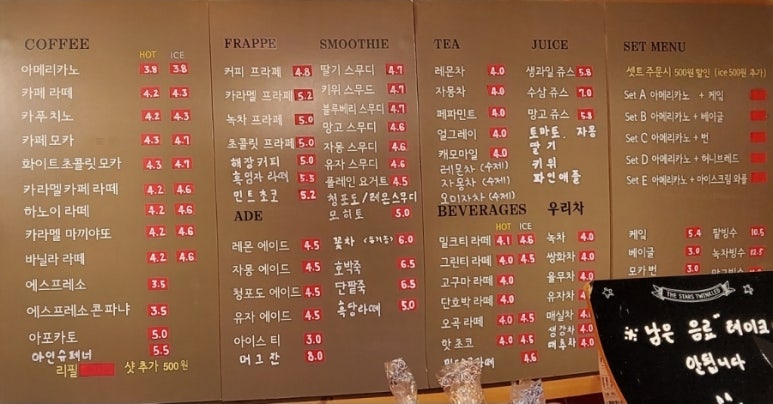 COFFEE
HOT ICE
아메리카노 3.8 3.8
카페 라떼 4.2 4.3
카푸치노 4.2 4.3
카페 모카 4.3 4.7
화이트초콜릿모카 4.3 4.7
카라멜카페 라떼 4.2 4.6
하노이 라떼 4.2 4.6
카라멜 마끼야또 4.2 4.6
바닐라 라떼 4.2 4.6
에스프레소 3.5
에스프레소 콘파냐 3.5
아포카토 5.0
아인슈페너 5.5
리필 샷 추가 500원
FRAPPE
커피 프라페 4.8
카라멜 프라페 5.2
녹차 프라페 5.0
초콜릿 프라페 5.0
해장커피 5.0
흑임자 라떼 5.3
민트초코 5.2
ADE
레몬 에이드 4.5
자몽 에이드 4.5
청포도 에이드 4.5
유자 에이드 4.5
아이스 티 3.0
머그잔 8.0
SMOOTHIE
딸기 스무디 4.7
키위 스무디 4.7
블루베리 스무디 4.7
망고 스무디 4.6
자몽 스무디 4.6
유자 스무디 4.6
플레인 요거트 4.5
청포도/레몬스무디
모히토 5.0
꽃차 6.0
호박죽 6.5
단팥죽 6.5
흑당라떼 5.0
TEA
레몬차 4.0
자몽차 4.0
페파민트 4.0
얼그레이 4.0
캐모마일 4.0
레몬차 (수제)
자몽차 (수제)
오미자차 (수제)
JUICE
생과일 쥬스 5.8
수삼 쥬스 7.0
망고 쥬스 5.8
토마토. 자몽
딸기
키위
파인애플
BEVERAGES
HOT ICE
밀크티 라떼 4.1 4.6
그린티 라떼 4.0 4.5
고구마 라떼 4.0
단호박 라떼 4.0
오곡 라떼 4.0 4.5
핫 초코 4.0 4.5
4.6
우리차
녹차 4.0
쌍화차 4.0
율무차 4.0
유자차 4.0
매실차 4.0
생강차 4.0
대추차 4.0
SET MENU
셋트 주문시 500원 할인 (ice 500원 추가)
Set A 아메리카노 + 케잌
Set B 아메리카노 + 베이글
Set C 아메리카노 + 번
Set D 아메리카노 + 허니브레드
Set E 아메리카노 + 아이스크림 와플
케잌 5.4 팥빙수 10.5
베이글 3.0 녹차빙수 12.5
모카 번 3.0 망고빙수
THE STARS TWINKLED
※ 남은 음료" 테이크
안됩니다